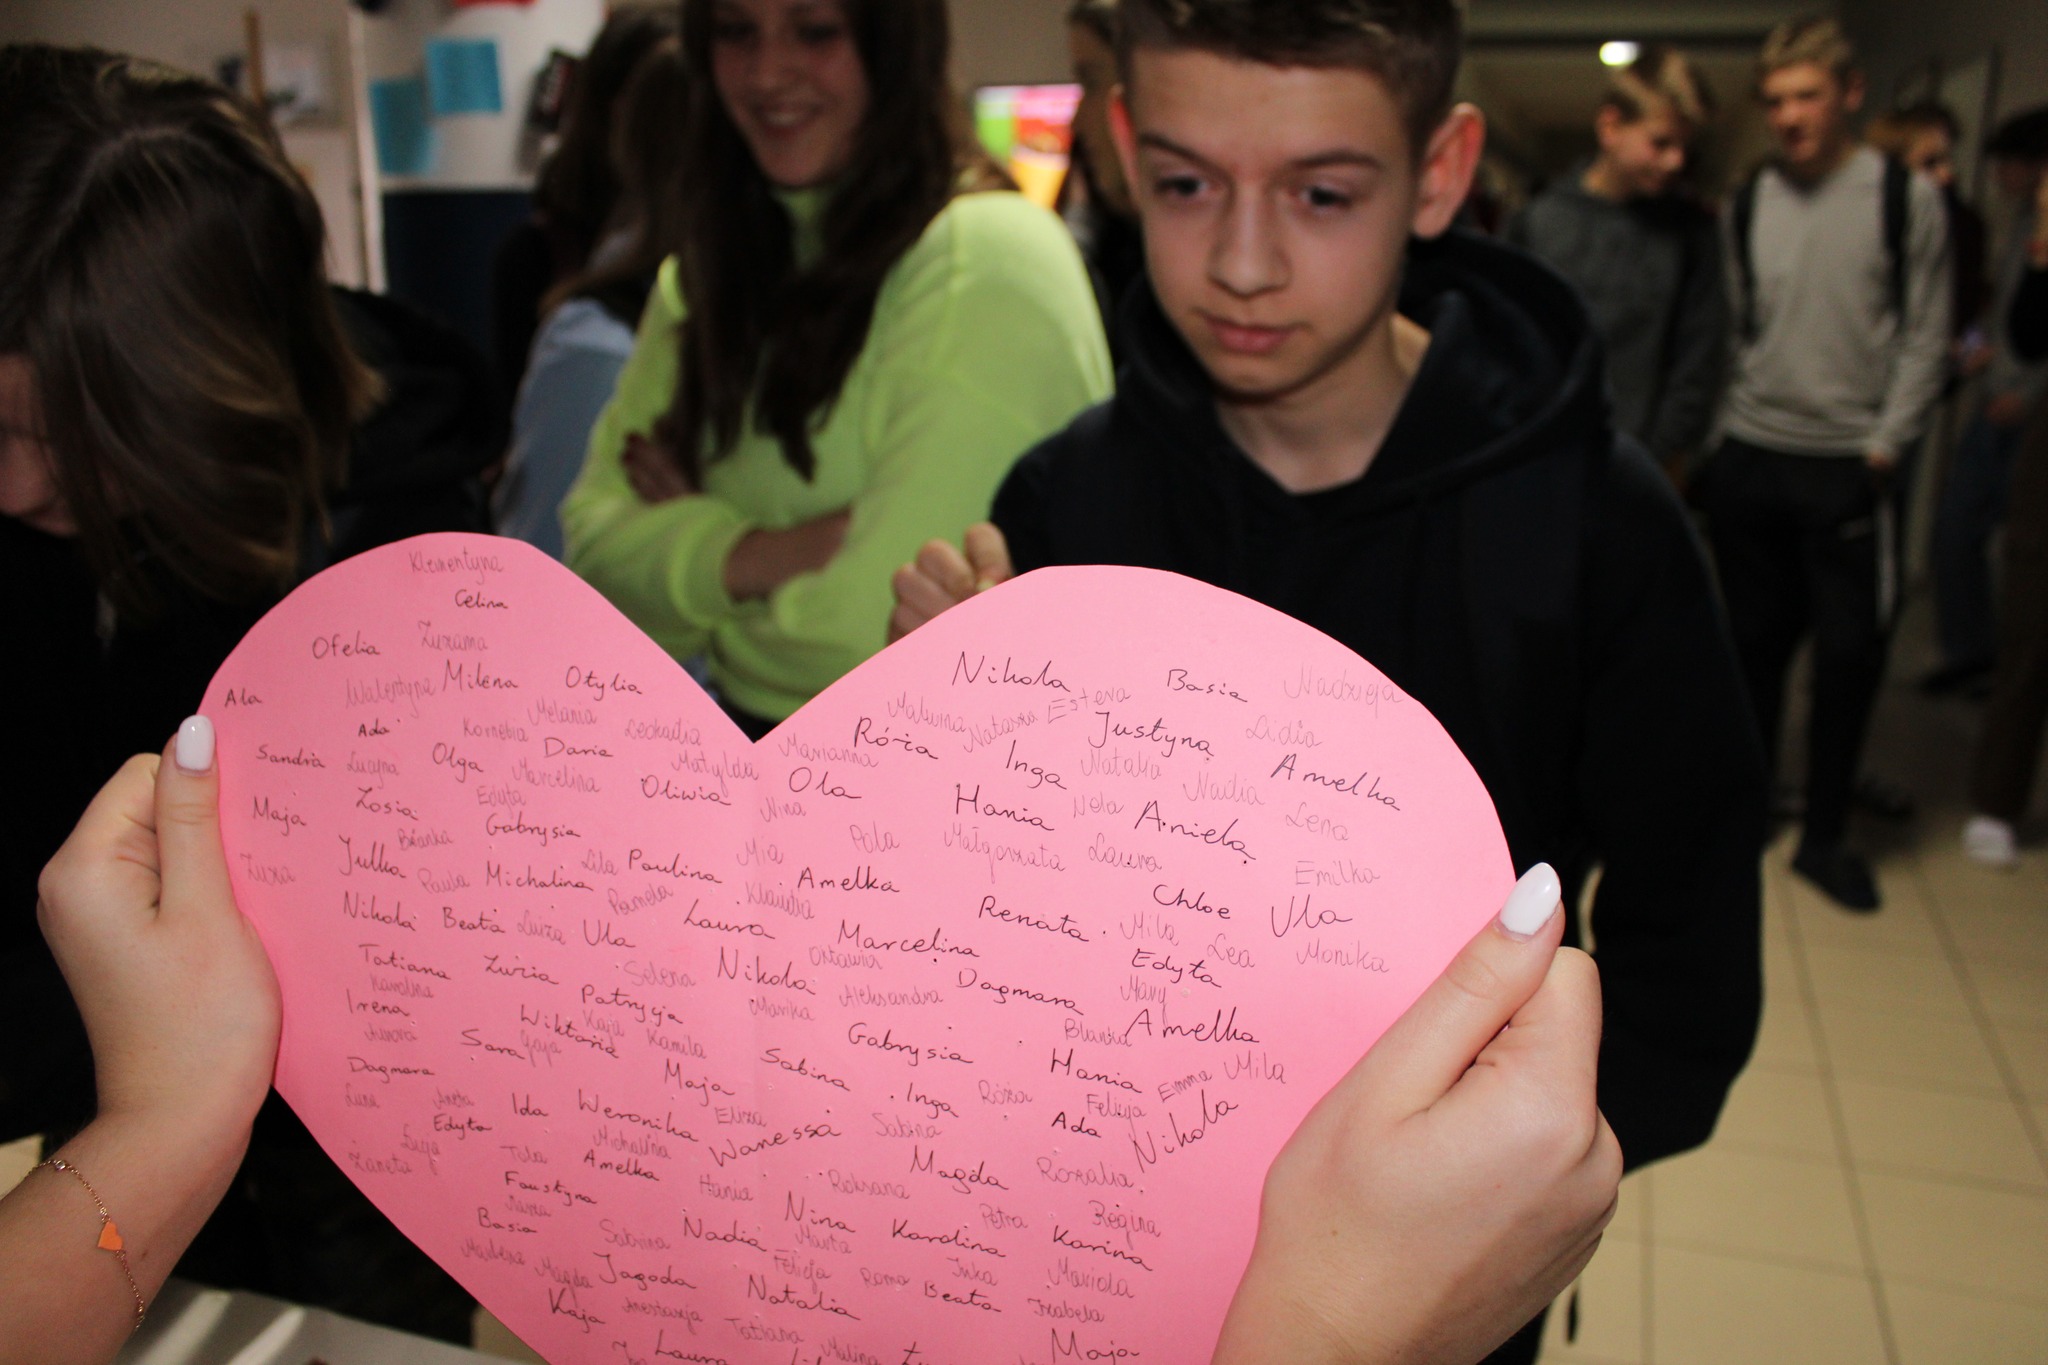 Klementyna
Celina
Ofelia Zuzanna
Ala Walentyna Milena Otylia
Ada Kornelia Melania Leokadia
Sandra Lucyna Olga Daria Matylda
Marcelina
Maja Zosia Edyta Oliwia
Gabrysia
Zuza Julka Blanka
Paula Michalina Lila Paulina
Nikola Beata Luiza Ula Pamela Laura
Tatiana Zuzia Selena Nikola
Karolina
Irena Patrycja
Aurora Wiktoria Kaja Kamila
Sara Gaja
Dagmara Maja
Luna Aneta Ida Weronika Eliza
Edyta Wanessa
Michalina
Żaneta Tola Amelka
Faustyna Hania
Basia Sabrina Nadia
Marlena Magda Jagoda Natalia
Kaja Anastazja Tatiana Malina
Laura
Nikola Basia Nadzieja
Malwina Natasza Estera
Marianna Róża Justyna Lidia
Inga Natalia Amelka
Ola Nadia
Nina Hania Nela Aniela Lena
Mia Pola Małgorzata Laura Emilka
Klaudia Amelka Chloe Ula
Renata Mila Lea Monika
Marcelina
Oktawia Edyta
Marika Aleksandra Dagmara Mary
Gabrysia Blanka Amelka
Sabina Hania Emma Mila
Inga Róża Felicja
Sabina Ada Nikola
Magda Rozalia
Roksana
Nina Petra Regina
Marta Karolina Karina
Felicja Roma Inka Mariola
Beata Izabela
Maja